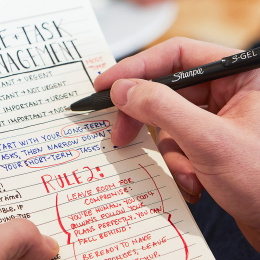 + TASK
NAGEMENT
ANT + URGENT
TANT + NOT URGENT
IMPORTANT + URGENT
IMPORTANT + NOT
START WITH YOUR LONG-TERM
TASKS, THEN NARROW DOWN T
YOUR SHORT-TERM TASKS.
RULE 2:
LEAVE ROOM FOR
COMPROMISE.
YOU'RE HUMAN. YOU WON'T
ALWAYS FOLLOW YOUR
PLANS PERFECTLY. YOU CAN
FALL BEHIND!
BE READY TO MAKE
LEAVE
Sharpie
S-GEL